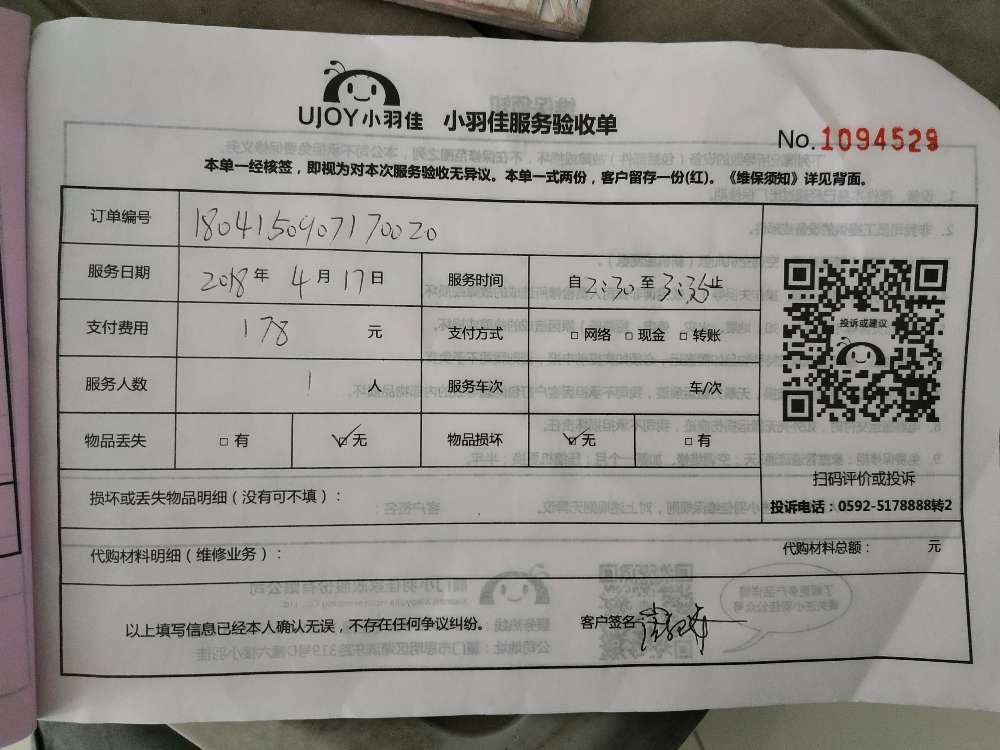 UJOY小羽佳 小羽佳服务验收单
No. 1094529
本单一经核签，即视为对本次服务验收无异议。本单一式两份，客户留存一份(红)。《维保须知》详见背面。
订单编号 180415090717 0020
服务日期 2018年 4月 17日 服务时间 自2:30至3:35止
支付费用 178 元 支付方式 □网络 □现金 □转账
服务人数 1 人 服务车次 车/次
物品丢失 □有 ☑无 物品损坏 ☑无 □有
损坏或丢失物品明细（没有可不填）：
代购材料明细（维修业务）： 代购材料总额： 元
以上填写信息已经本人确认无误，不存在任何争议纠纷。 客户签名
投诉或建议
扫码评价或投诉
投诉电话：0592-5178888转2